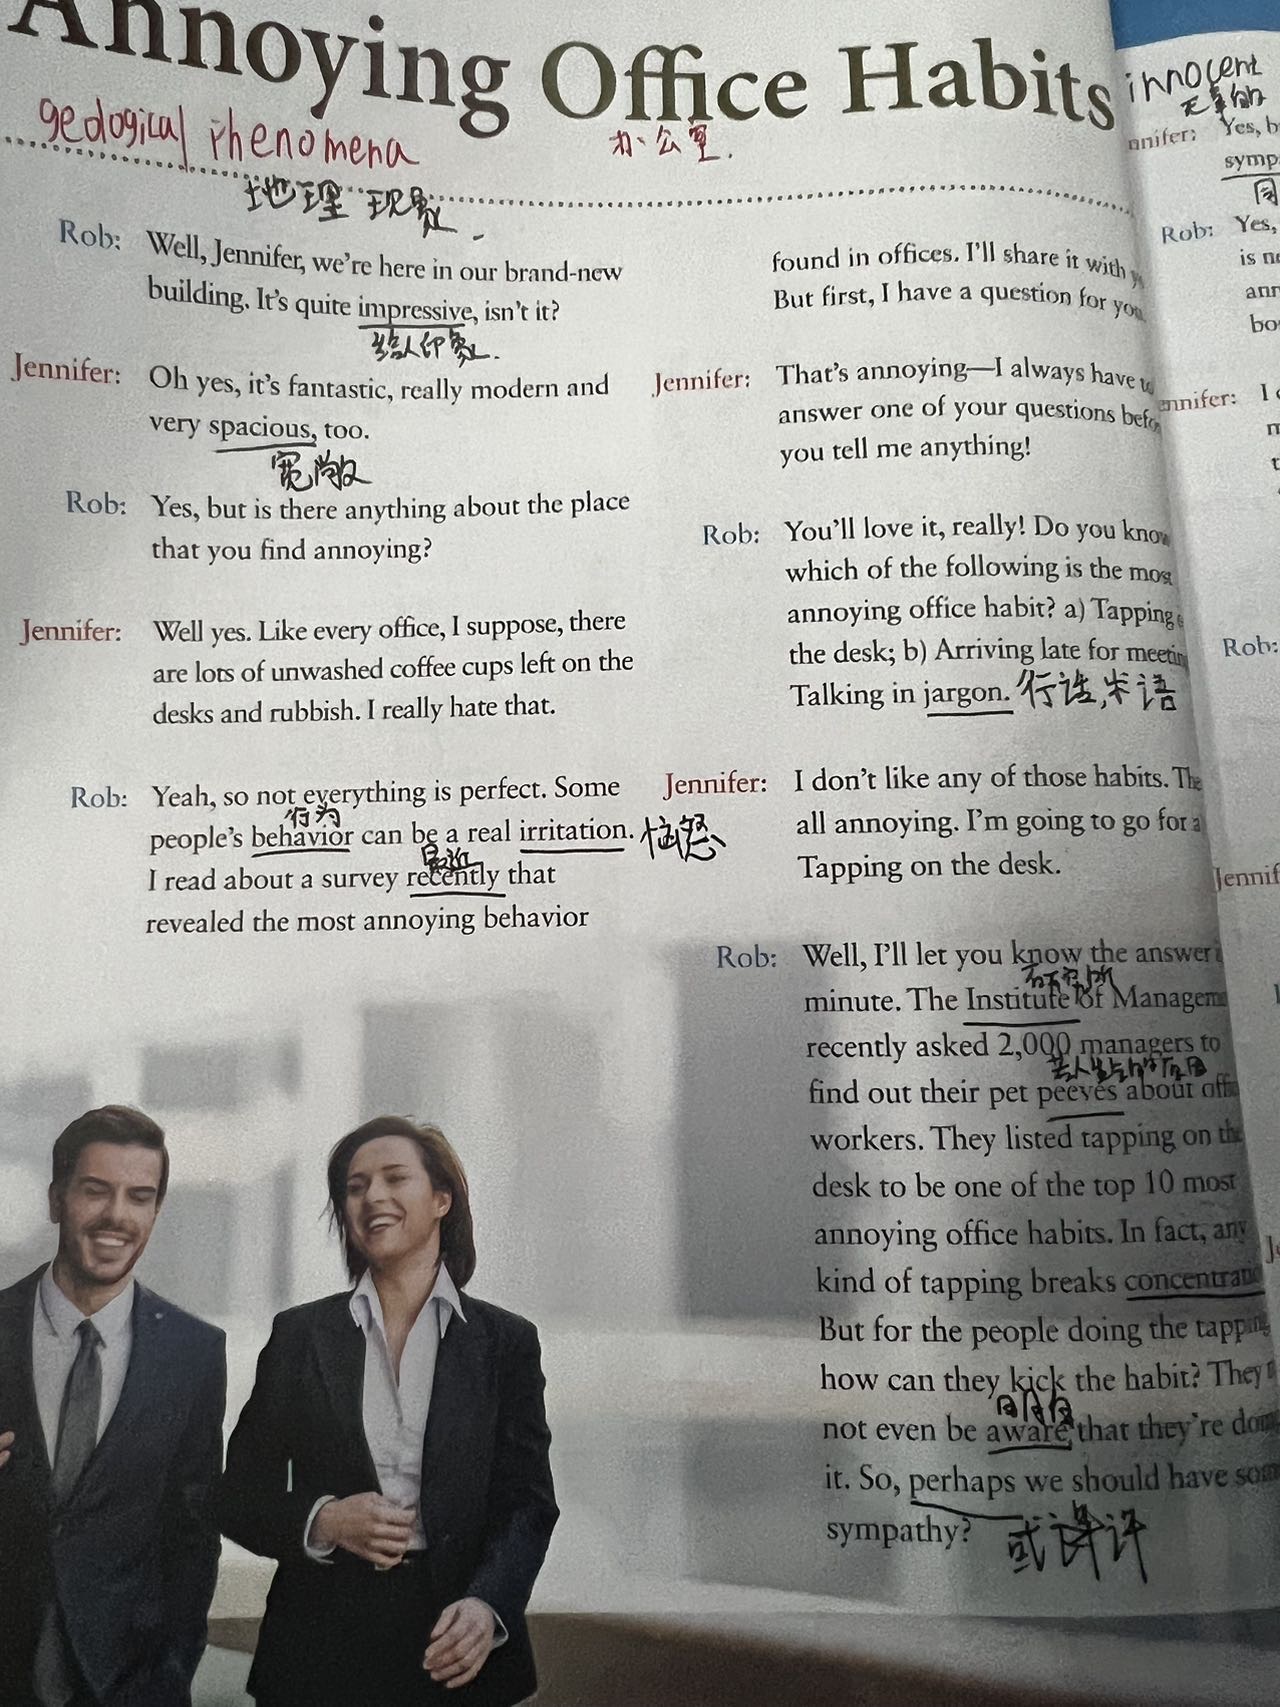 Annoying Office Habits
geological Phenomena
办公室.
地理 现象
innocent
天真的
Rob: Well, Jennifer, we're here in our brand-new
building. It's quite impressive, isn't it?
给人印象.
Jennifer: Oh yes, it's fantastic, really modern and
very spacious, too.
宽敞
Rob: Yes, but is there anything about the place
that you find annoying?
Jennifer: Well yes. Like every office, I suppose, there
are lots of unwashed coffee cups left on the
desks and rubbish. I really hate that.
Rob: Yeah, so not everything is perfect. Some
行为
people's behavior can be a real irritation. 恼怒
最近
I read about a survey recently that
revealed the most annoying behavior
found in offices. I'll share it with
But first, I have a question for you.
Jennifer: That's annoying—I always have to
answer one of your questions
you tell me anything!
Rob: You'll love it, really! Do you know
which of the following is the most
annoying office habit? a) Tapping
the desk; b) Arriving late for
Talking in jargon. 行话,术语
Jennifer: I don't like any of those habits.
all annoying. I'm going to go for a
Tapping on the desk.
Rob: Well, I'll let you know the answer
研究所
minute. The Institute of
recently asked 2,000 managers to
find out their pet peeves about
workers. They listed tapping on the
desk to be one of the top 10 most
annoying office habits. In fact, any
kind of tapping breaks
But for the people doing the
how can they kick the habit? They
not even be aware that they're
it. So, perhaps we should have
sympathy? 或许
nnifer: Yes, b
symp
Rob: Yes,
is
ann
bo
nnifer: I
Rob:
Jennif